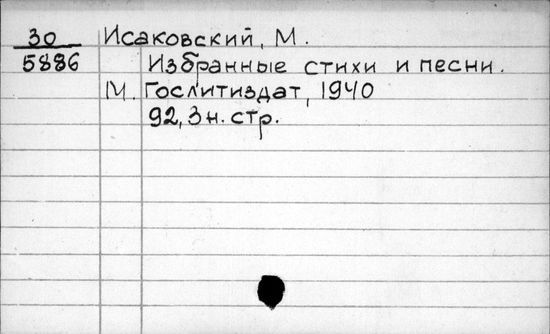 30 Исаковский, М.
5886 Избранные стихи и песни.
М. Гослитиздат, 1940
92, 3 н. стр.